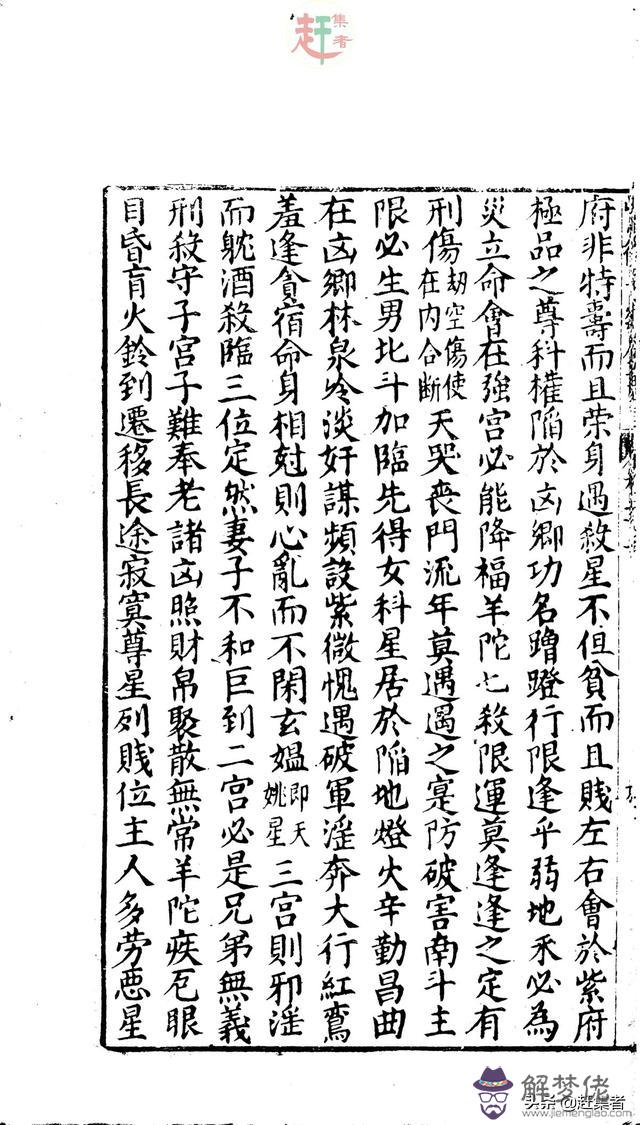 赶集者
府非特壽而且荣身遇殺星不但貧而且賎左右會於紫府
極品之尊科權陥於凶鄉功名蹭蹬行限逢乎弱地未必為
災立命會在強宫必能降福羊陀七殺限運莫逢逢之定有
刑傷劫空傷使在内合断天哭丧門流年莫遇遇之寔防破害南斗主
限必生男北斗加臨先得女科星居於陥地燈火辛勤昌曲
在凶鄉林泉冷淡奸謀頻設紫微愧遇破軍淫奔大行紅鸞
羞逢貪宿命身相尅則心亂而不閑玄媪即天姚星三宫則邪淫
而躭酒殺臨三位定然妻子不和巨到二宫必是兄弟無義
刑殺守子宫子難奉老諸凶照財帛聚散無常羊陀疾厄眼
目昏盲火鈴到遷移長途寂寞尊星列賎位主人多劳惡星
解梦佬
www.jiemenglao.com
头条@赶集者